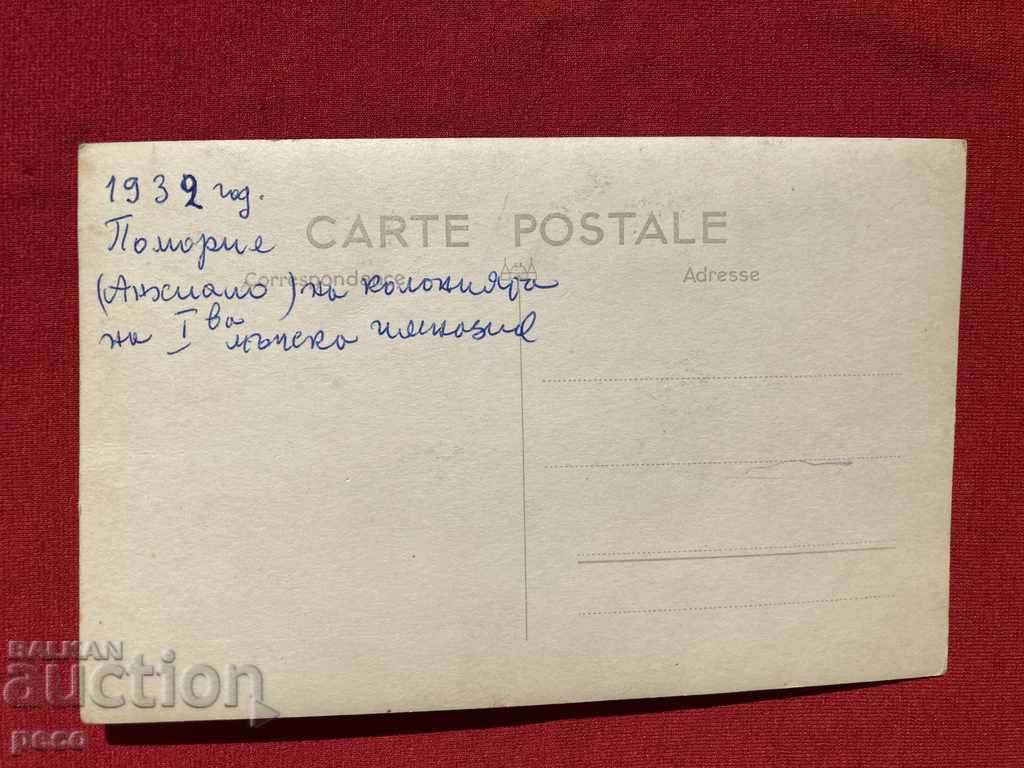 1932 год.
CARTE POSTALE
Поморие
Correspondance
Adresse
(Анхиало) на колонията
на Iва мъжска гимназия
BALKAN
auction
peco